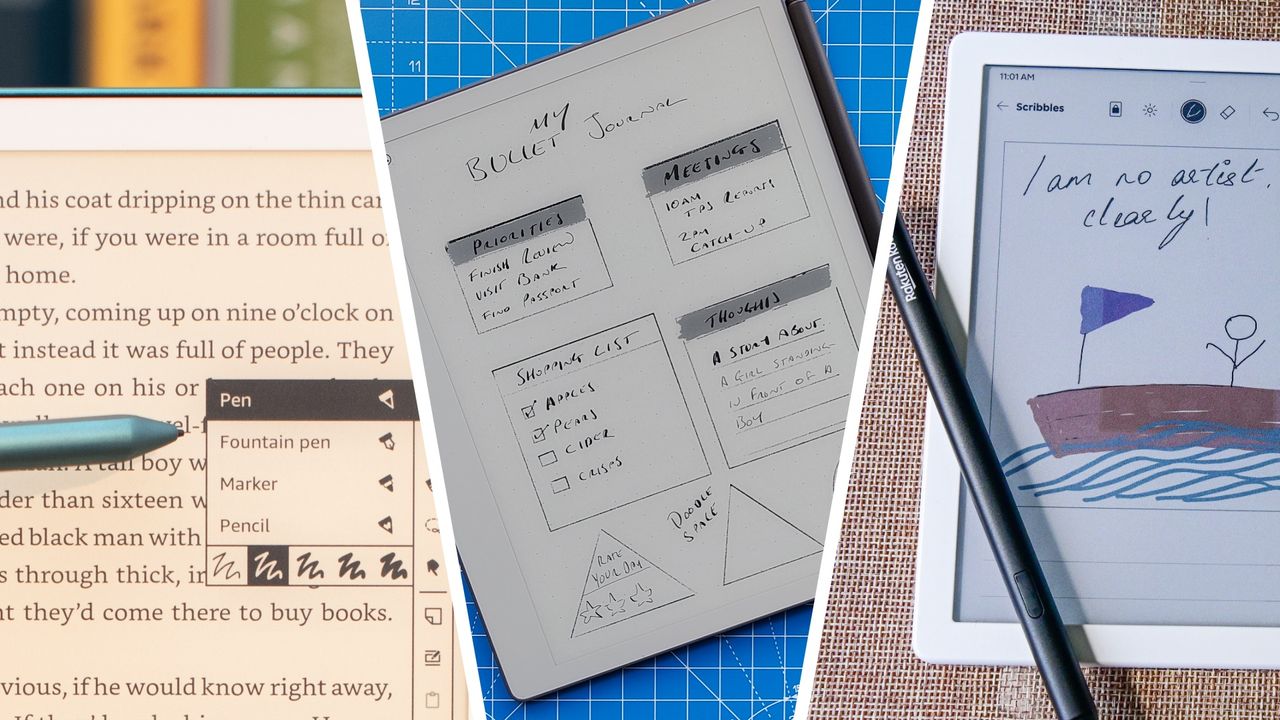 nd his coat dripping on the thin car
were, if you were in a room full o
home.
mpty, coming up on nine o’clock on
t instead it was full of people. They
ach one on his or
boy w
der than sixteen w
ed black man with
s through thick, in
nt they’d come there to buy books.
vious, if he would know right away,
Pen
Fountain pen
Marker
Pencil
12
11
MY
BULLET JOURNAL
PRIORITIES
FINISH REVIEW
VISIT BANK
FIND PASSPORT
MEETINGS
10AM
TPS REPORTS
2PM
CATCH-UP
SHOPPING LIST
APPLES
PEARS
CIDER
CRISPS
THOUGHTS
A STORY ABOUT
A GIRL STANDING
IN FRONT OF A
BOY
DOODLE
SPACE
RATE
YOUR DAY
11:01 AM
Scribbles
I am no artist,
clearly!
Rakuten ko